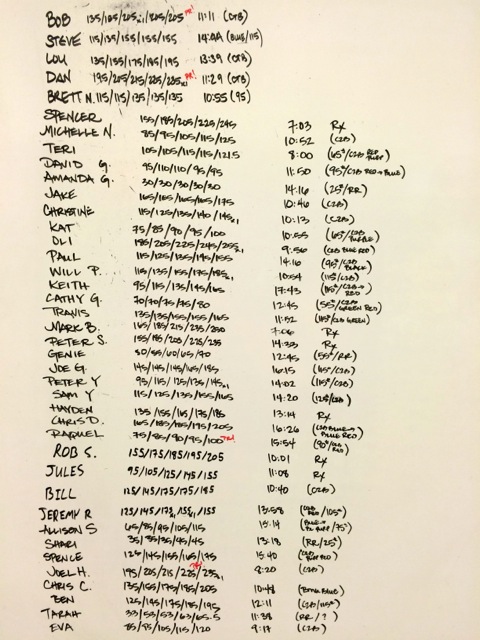 BOB 135/165/205x1/205/205 PR! 11:11 (OTB)
STEVE 115/135/155/155/155 14:44 (BLUE/115)
LOU 135/155/175/185/195 13:39 (OTB)
DAN 195/205/215/225/235x1 PR! 11:29 (OTB)
BRETT N. 115/115/135/135/135 10:55 (95)
SPENCER 155/185/205/225/245 7:03 Rx
MICHELLE N. 85/95/105/115/125 10:52 (C2B)
TERI 105/105/115/115/121.5 8:00 (65#/C2B RED
DAVID G. 95/110/110/95/95 11:50 (95#/C2B RED→BLUE)
AMANDA G. 30/30/30/30/30 14:16 (25#/RR)
JAKE 165/165/165/165/175 10:46 (C2B)
CHRISTINE 115/125/135/140/145x1 10:13 (C2B)
KAT 75/85/90/95/100 10:55 (65#/C2B PURPLE)
OLI 185/205/225/245/255x1 9:56 (C2B BLUE RED)
PAUL 115/125/135/145/155 14:16 (95#/C2B BLACK)
WILL P. 115/135/155/175/185x1 10:54 (115#/C2B)
KEITH 95/115/135/145/165 17:43 (115#/C2B→ RED)
CATHY G. 70/70/75/75/80 12:45 (55#/C2B GREEN RED)
TRAVIS 135/135/155/155/165 11:52 (115#/C2B GREEN)
MARK B. 165/185/215/235/250 7:06 Rx
PETER S. 155/185/205/225/235 14:33 Rx
GENIE 50/55/60/65/70 12:45 (55#/RR)
JOE G. 145/145/145/155/155 16:15 (65#/C2B)
PETER Y 95/115/125/135/145x1 14:02 (115#/C2B)
SAM Y 115/125/135/155/165 14:20 (125#/C2B)
HAYDEN 135/155/165/175/185 13:14 Rx
CHRIS D. 165/185/185/195/205 16:26 (C2B BLUE→ BLUE RED)
RAQUEL 75/85/90/95/100 PR! 15:54 (90#/C2B RED)
ROB S. 155/175/185/195/205 10:01 Rx
JULES 95/105/125/145/155 11:08 Rx
BILL 125/145/175/175/185 10:40 (C2B)
JEREMY R 125/145/175x1/155x1/155 13:58 (C2B RED/105#)
ALLISON S 65/85/95/105/115 15:14 (BLUE→ /75#)
SHARI 35/35/35/45/45 13:18 (RR/25#)
SPENCE 125/145/155/165/175 15:40 (C2B RED)
JOEL H. 195/205/215/225/235x1 PR! 8:20 (C2B)
CHRIS C. 135/155/175/185/205 10:48 (BLUE)
BEN 125/145/175/185/195 12:11 (C2B/115#)
TARAH 33/53/53/63/65.5 11:38 (RR/?)
EVA 85/95/105/115/120 9:17 (C2B)